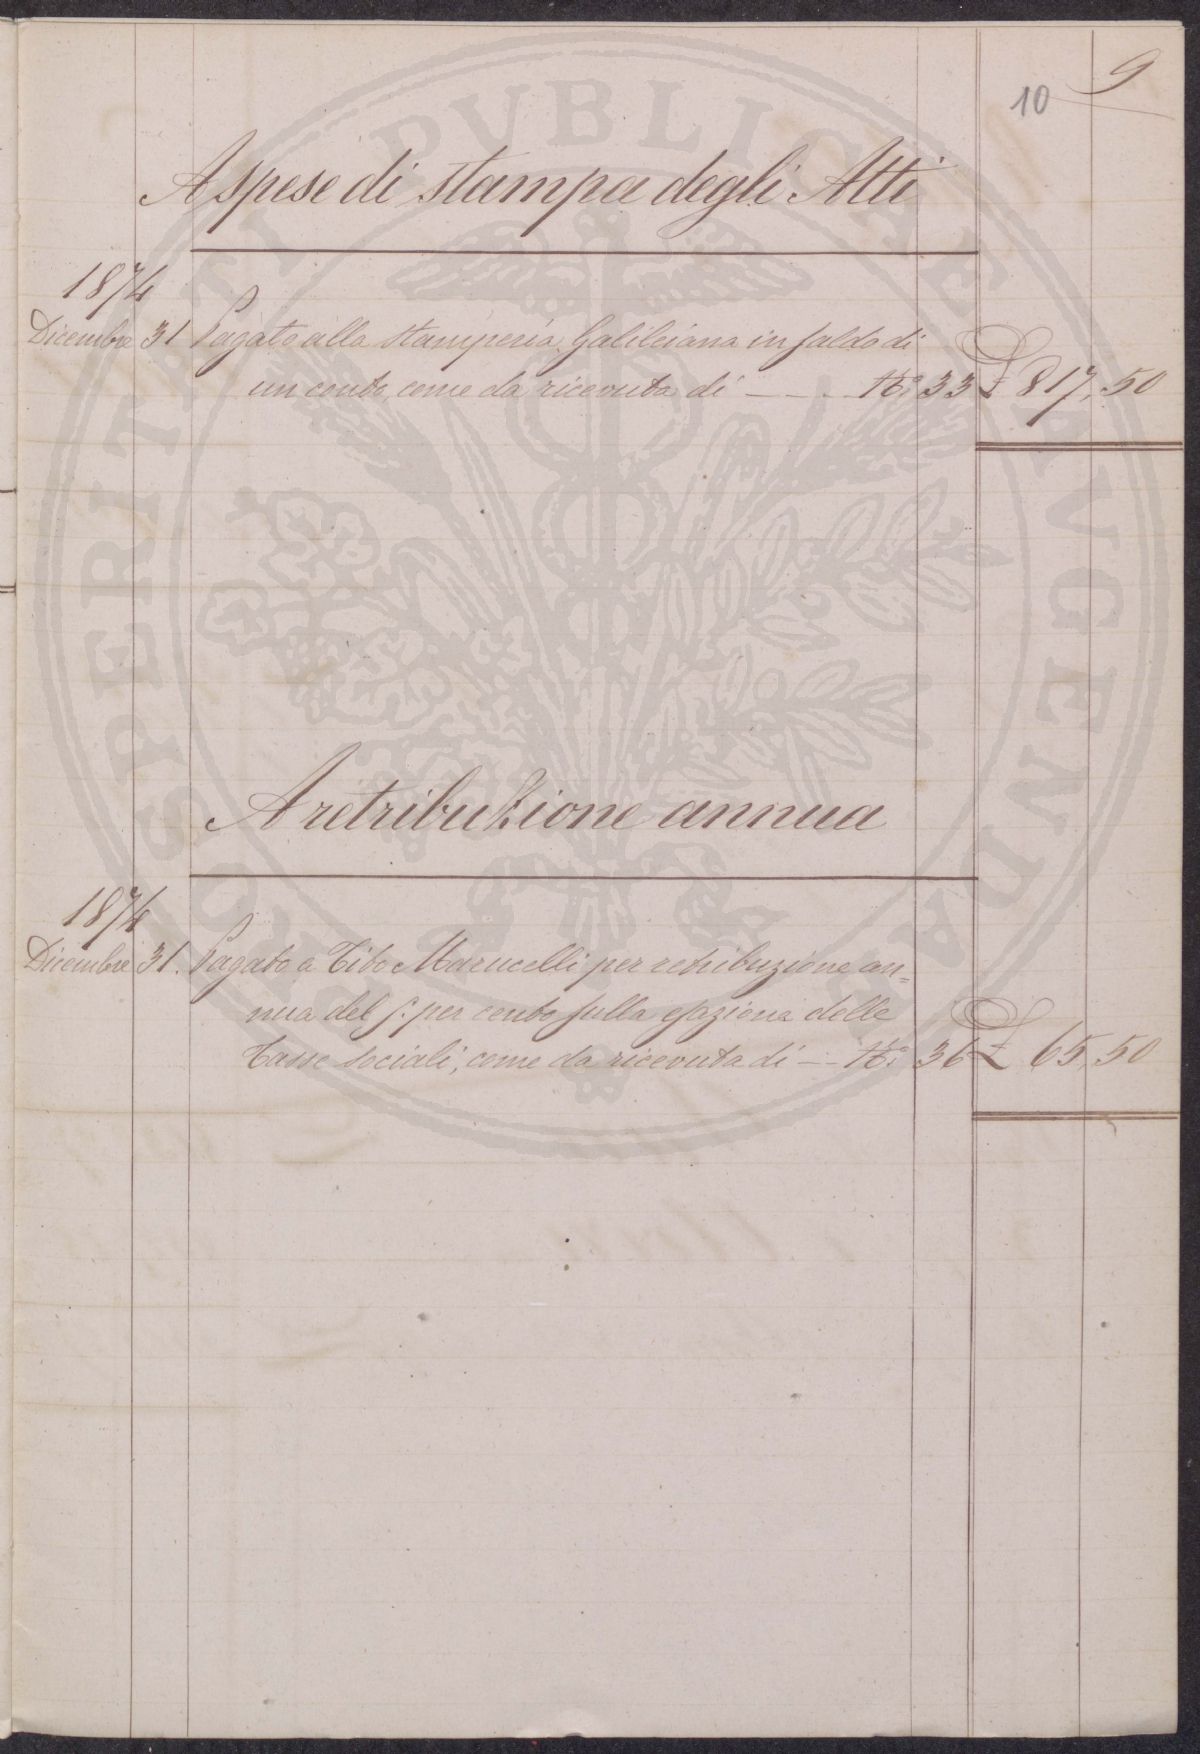 10 9
A spese di stampa degli Atti
1874
Dicembre 31 Pagato alla stamperia Galileiana in saldo di
un conto, come da ricevuta di — — — No 33 £ 817,50
A retribuzione annua
1874
Dicembre 31. Pagato a Tito Marucelli per retribuzione an=
nua del 5. per cento sulla esazione delle
tasse sociali, come da ricevuta di — No 36 £ 65,50
PROSPERITATI PVBLICAE AVGENDAE